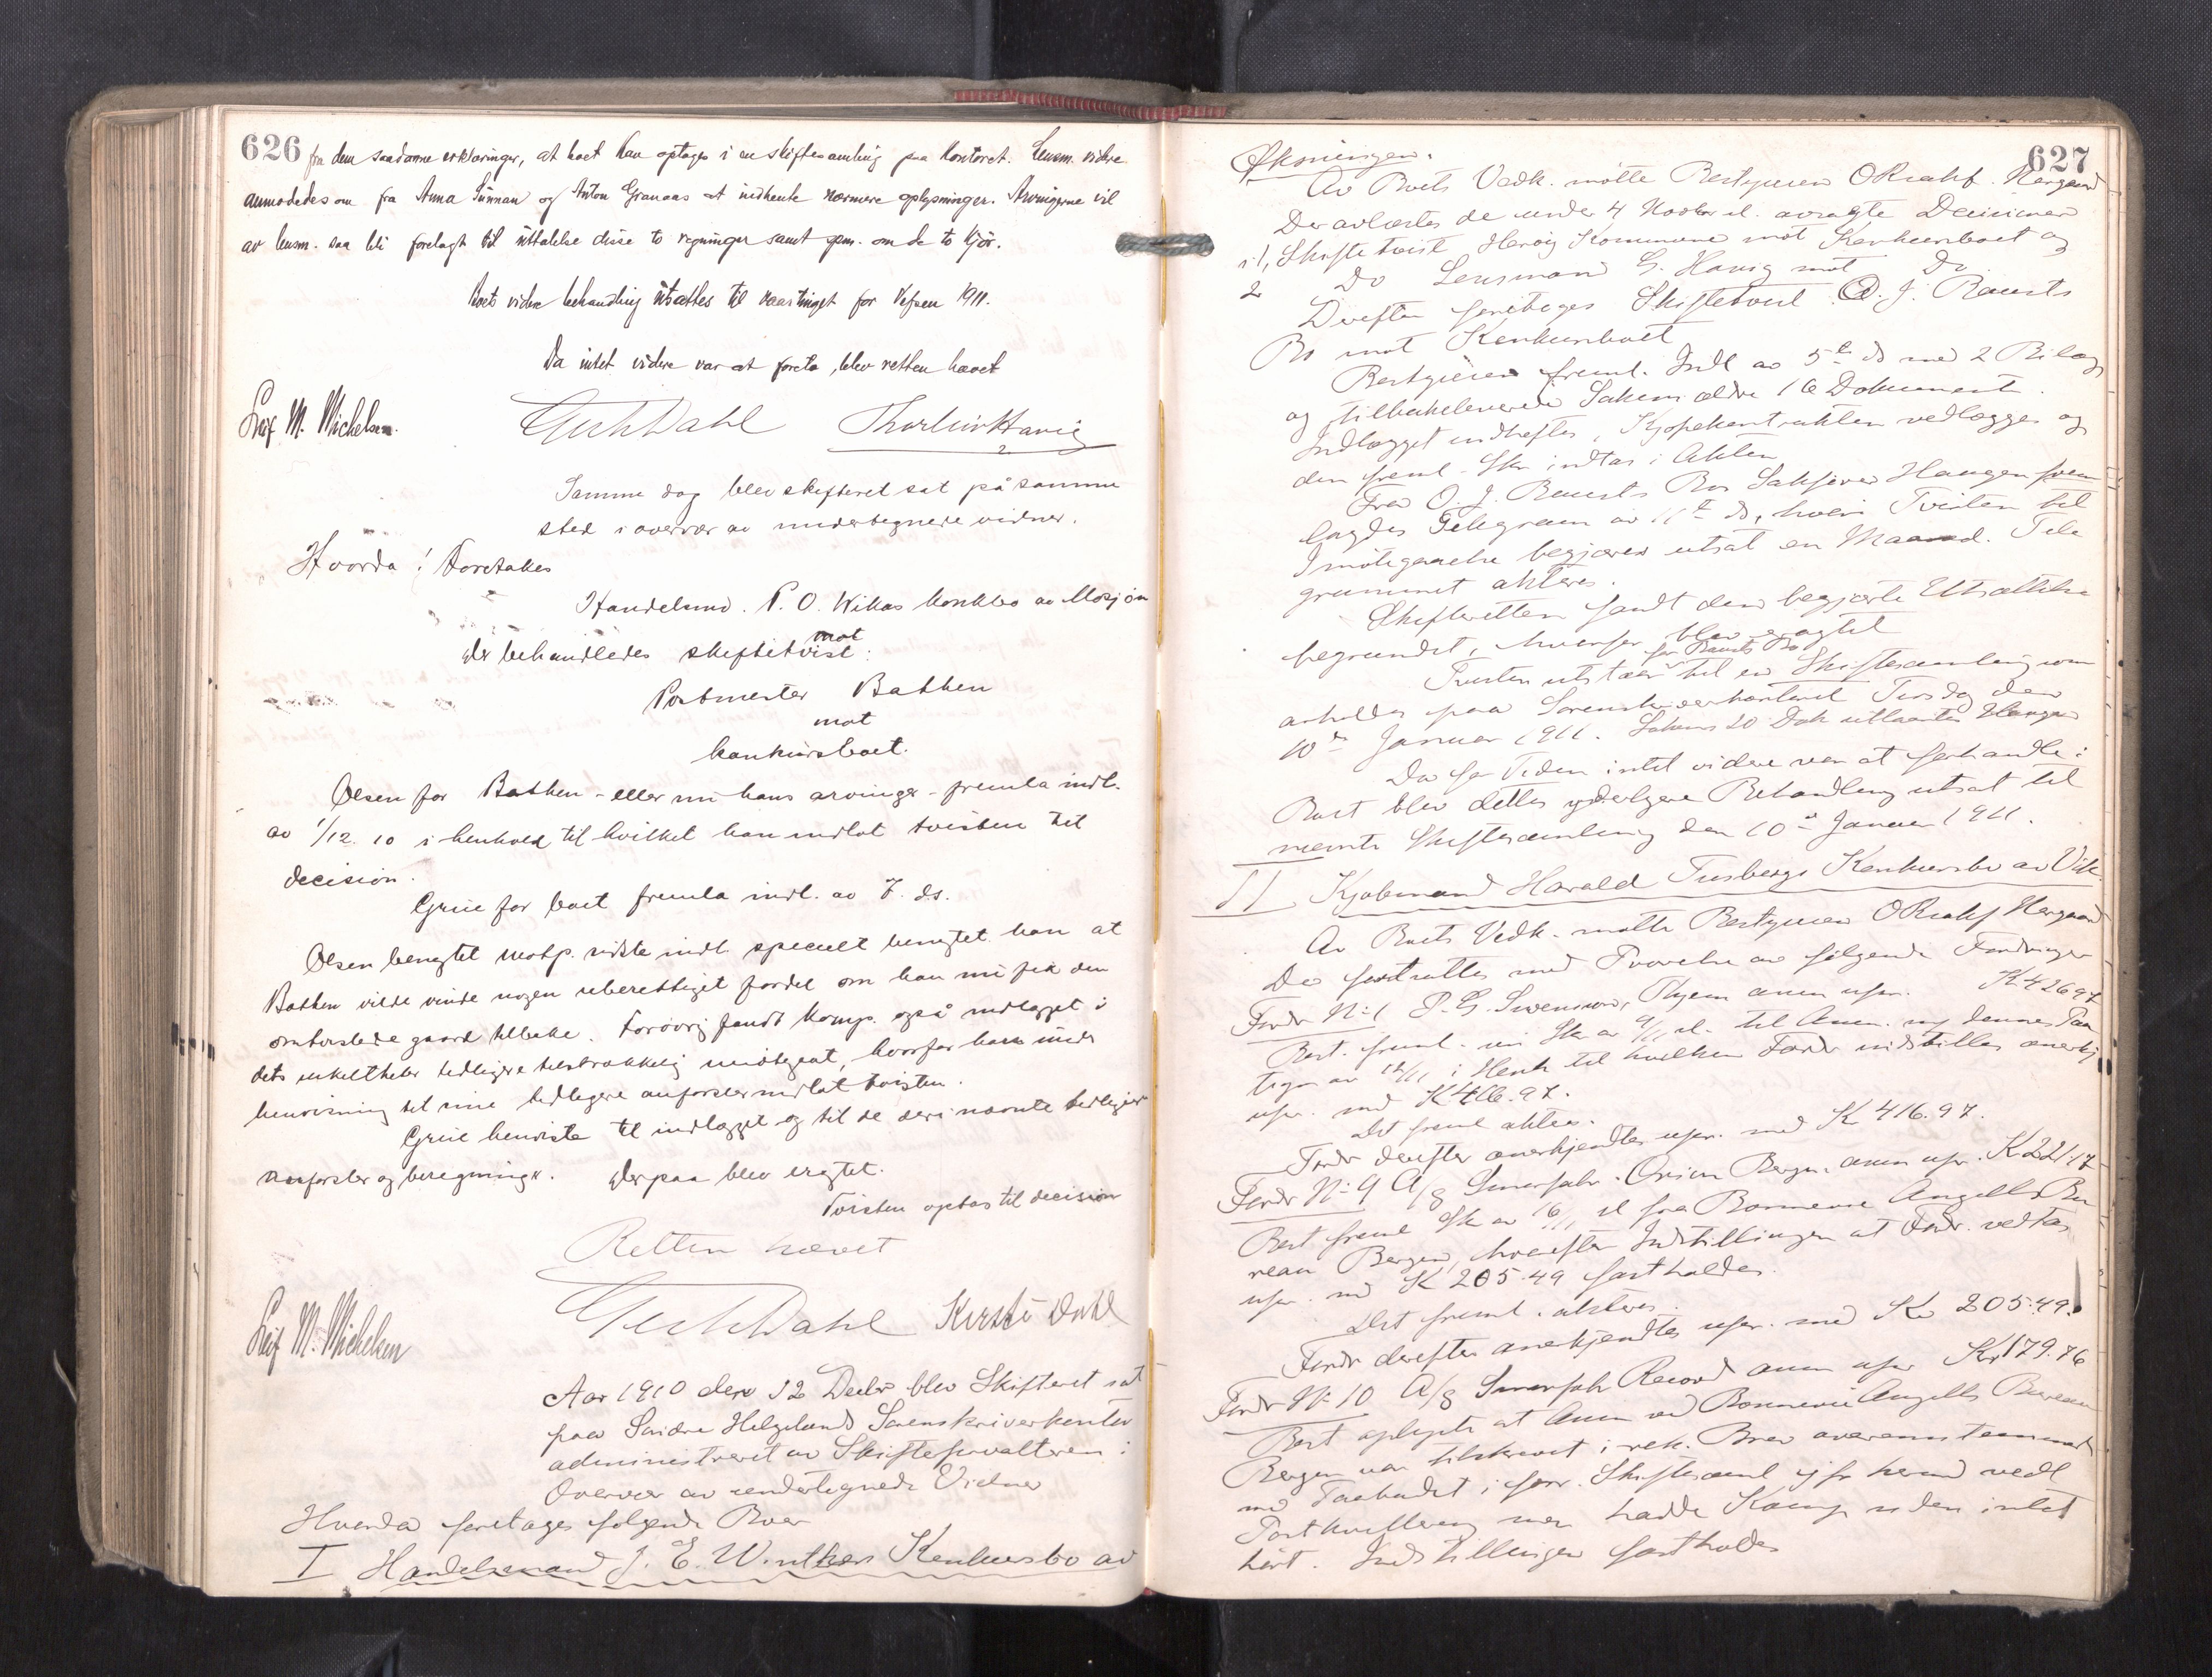 626
fra dem saadanne erklæringer, at boet kan optages i en skiftesamling paa kontoret. Lensm. videre
anmodedes om fra Anna Sünnan og Anton Granaas at indhente nærmere oplysninger. Arvingerne vil
av lensm. saa bli forelagt til üttalelse disse to regninger samt spm. om de to kjör.
Boets videre behandling ütsattes til vaartinget for Vefsen 1911.
Da intet videre var at foreta, blev retten hævet
Leif M. Michelsen. Dahl
Samme dag blev skifteret sat på samme
sted i overvær av undertegnede vidner.
Hvorda: Foretakes
Handelsmd. P. O. Wikas konkbo av Mosjøen
der behandledes skiftetvist:
mot
Postmester Bathen
mot
konkürsboet.
Olsen for Bathen - eller nü hans arvinger - fremla indl.
av 1/12. 10 i henhold til hvilket han indlot tvisten til
decision.
Grüe for boet fremla indl. av 7. ds.
Olsen benegtet motp. sidste indl. specielt benegtet han at
Bathen vilde vinde nogen uberettiget fordel om han nü fik den
omtvistede gaard tilbake. Forövrig fandt komp. også indlægget i
dets enkeltheter tidligere tilstrækkelig imötegaat, hvorfor han under
henvisning til sine tidligere anförsler indlot tvisten.
Grüe henviste til indlægget og til de deri nævnte tidligere
anförsler og beregninger. Derpaa blev eragtet.
Tvisten optas til decision
Retten hævet
Leif M. Michelsen Dahl Kirsti Dahl
Aar 1910 den 12 Decbr blev Skifteret sat
paa Söndre Helgelands Sorenskriverkontor
administreret av Skifteforvalteren i
Overvær av undertegnede Vidner
Hvorda foretages følgende Boer
I Handelsmand J. E. Winthers Konkursbo av
627
Øksningen.
Av Boets Vedk. mötte Bestyreren O Rsahlf. Nergaard
Der avlæstes de under 4 Novbr d. avsagte Decisioner
i 1, Skiftetvist Herøy Kommune mot Konkursboet og
2 Do Lensmand G. Havig mot Do
Derefter foretoges Skiftetvist O. J. Rausts
Bo mot Konkursboet
Bestyreren freml. Indl av 5te ds med 2 Bilag
og tilbakeleverede Sakens ældre 16 Dokumenter.
Indlægget indheftes, Kjøpekontrakten vedlægges og
den freml. Skr indtas i Akten
Fra O. J. Rausts Bo Sakfører Haugen frem
lagdes Telegram av 11te ds, hvori Tvisten til
Imötegaaelse begjæres utsat en Maaned. Tele
grammet akteres.
Skifteretten fandt den begjærte Utsættelse
begrundet, hvorfor blev eragtet
for Rausts Bo
Tvisten utstaar til en Skiftesamling som
avholdes paa Sorenskriverkontoret Tirsdag den
10de Januar 1911. Sakens 20 Dok utlaantes Haugen
Da for Tiden intet videre var at forhandle i
Boet blev dettes yderligere Behandling utsat til
nævnte Skiftesamling den 10de Januar 1911.
II Kjøbmand Harald Tusbergs Konkursbo av Vik.
Av Boets Vedk. mötte Bestyreren O Rsahlf Nergaard
Der fortsattes med Prøvelse av følgende Fordringer
Fordr No 1 P. G. Svensson, anm upr. K 426 97
Best. freml. sin Skr av 9/11 d. til Anm. og dennes Paa
tegn av 12/11 i Henh til hvilken Fordr indstilles anerkj
upr. med K 416.97.
Det freml akteres.
Fordr derefter anerkjendtes upr. med K 416.97.
Fordr No 9 A/S Smørfabr. Orion Bergen. anm upr. K 221 17
Best freml Skr av 16/11 d fra Bonnevie Angells Bu
reau Bergen, hvorefter Indstillingen at Fordr. vedtas
upr. med K 205.49 fastholdes.
Det freml. akteres.
Fordr derefter anerkjendtes upr. med Kr 205.49.
Fordr No 10 A/S Smørfabr Record anm upr Kr 179.76
Best oplyste at Anm ved Bonnevie Angells Bureau
Bergen var tilskrevet i rek. Brev overensstemmende
med Paabudet i forr. Skiftesaml jfr herved vedl
Postkvittering men hadde Komp siden intet
hørt. Indstillingen fastholdes